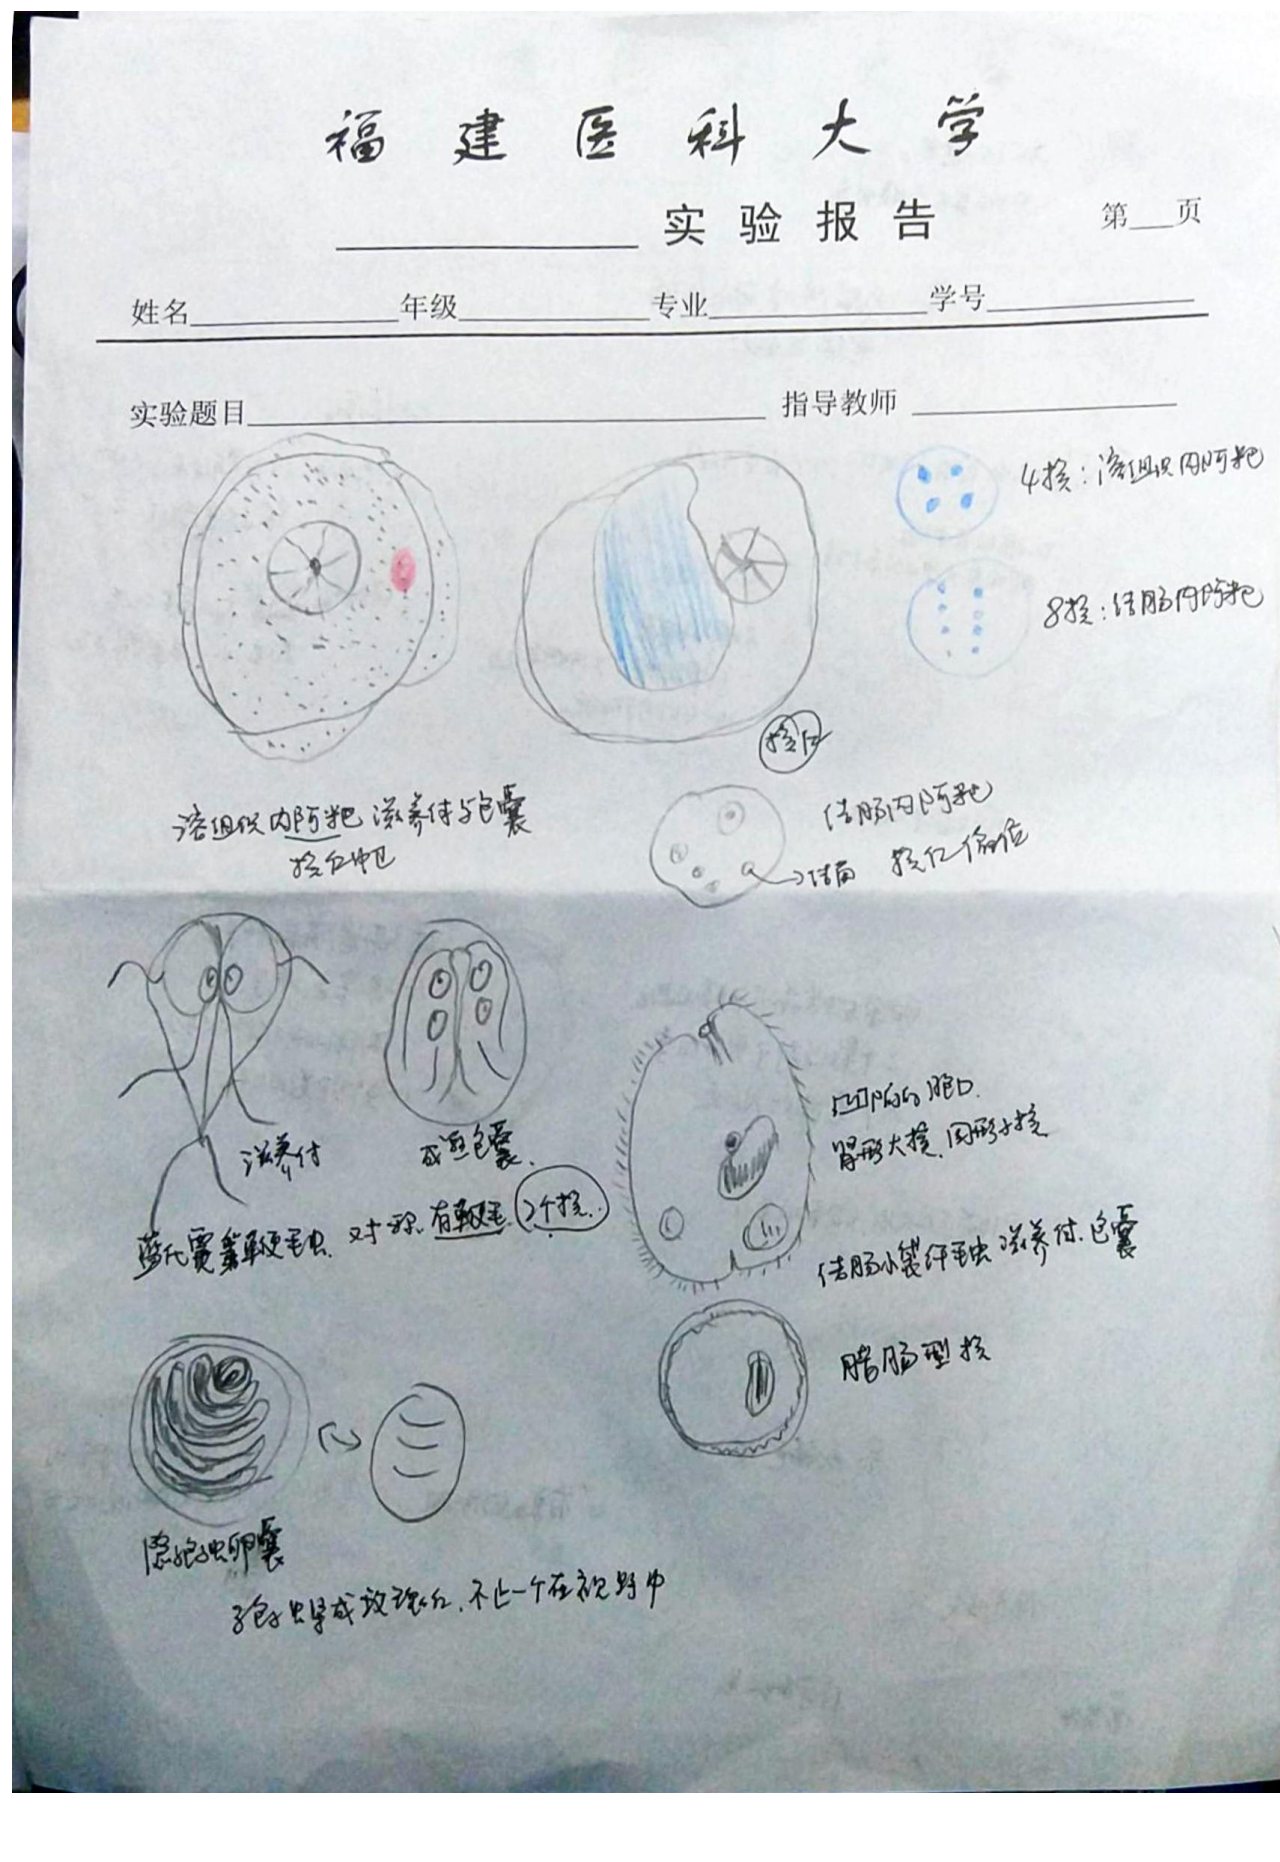 福建医科大学
实验报告 第 页
姓名 年级 专业 学号
实验题目 指导教师
4核：溶组织内阿米巴
8核：结肠内阿米巴
核仁
溶组织内阿米巴 滋养体与包囊
核仁中心
结肠内阿米巴
核仁偏位
滋养体
成熟包囊
蓝氏贾第鞭毛虫 对称 有鞭毛 2个核
凹陷的胞口
肾形大核、圆形小核
结肠小袋纤毛虫 滋养体、包囊
腊肠型核
隐孢子虫卵囊
染成玫瑰红，不止一个在视野中